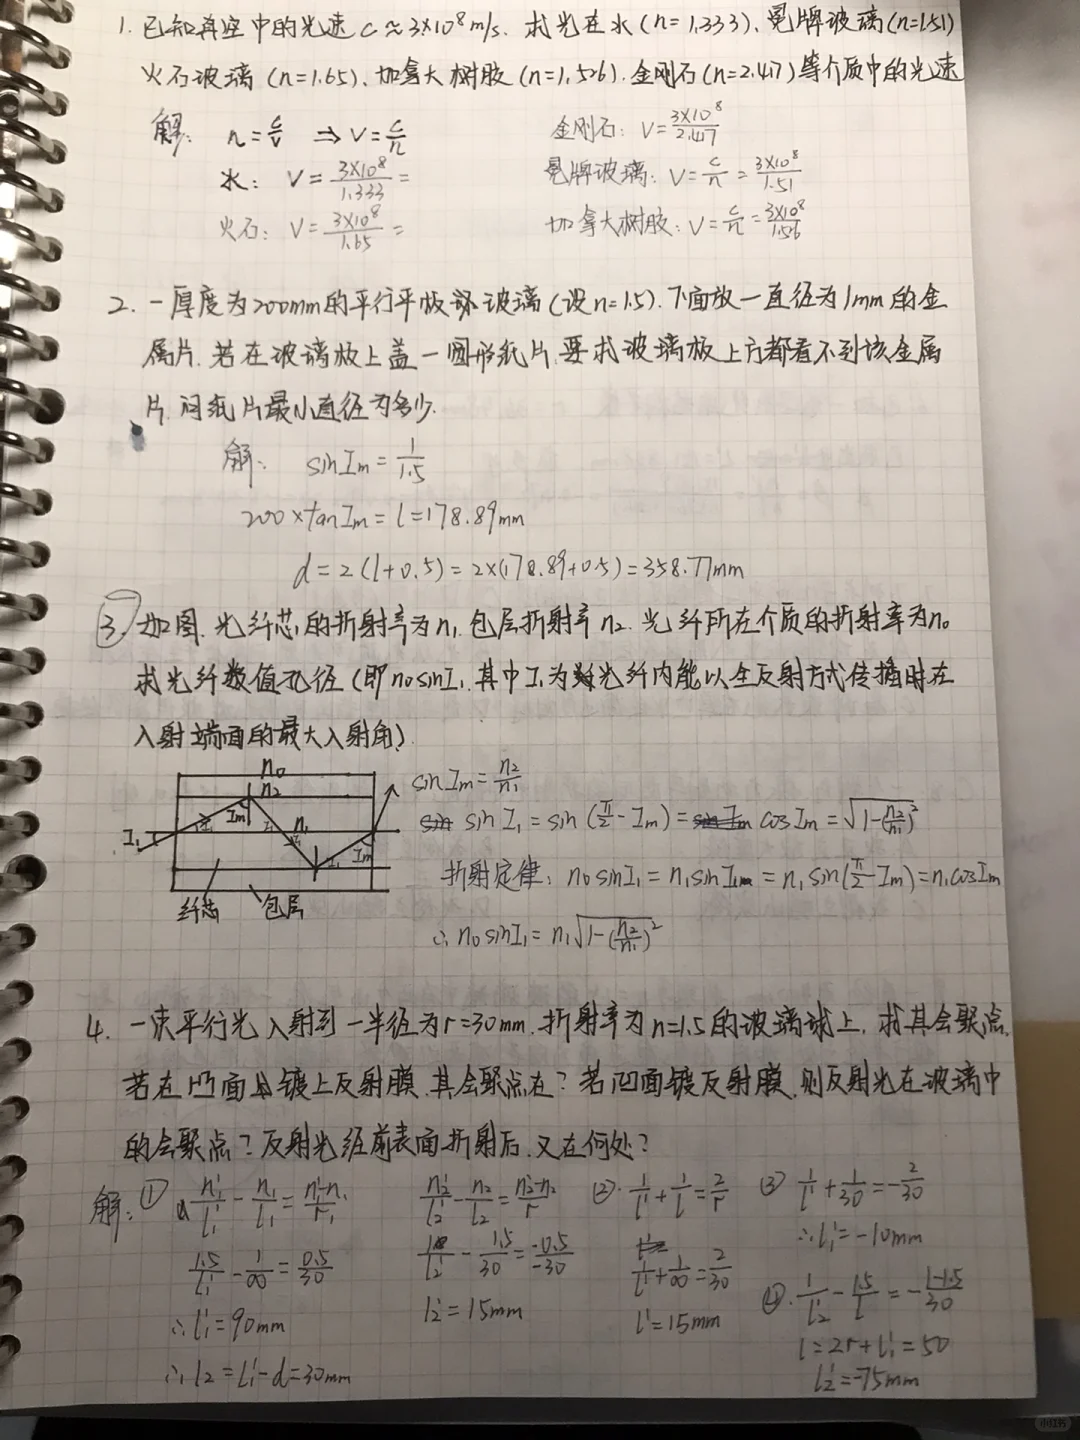 1. 已知真空中的光速 c≈3×10⁸m/s. 求光在水(n=1.333)、冕牌玻璃(n=1.51)
火石玻璃(n=1.65)、加拿大树胶(n=1.526).金刚石(n=2.417)等介质中的光速
解: n=c/v ⇒ v=c/n
金刚石: v=3×10⁸/2.417
水: v=3×10⁸/1.333=
冕牌玻璃: v=c/n=3×10⁸/1.51
火石: v=3×10⁸/1.65=
加拿大树胶: v=c/n=3×10⁸/1.526
2. 一厚度为200mm的平行平板玻璃(设n=1.5).下面放一直径为1mm的金
属片.若在玻璃板上盖一圆形纸片.要求玻璃板上方都看不到该金属
片.问纸片最小直径为多少.
解: sinIm=1/1.5
200×tanIm=l=178.89mm
d=2(l+0.5)=2×(178.89+0.5)=358.77mm
③. 如图.光纤芯的折射率为n₁.包层折射率n₂.光纤所在介质的折射率为n₀
求光纤数值孔径(即n₀sinI₁.其中I₁为光纤内能以全反射方式传播时在
入射端面的最大入射角).
n₀
n₂
Im
n₁
I₁
Im
纤芯 包层
sinIm=n₂/n₁
sinI₁=sin(π/2-Im)=cosIm=√(1-(n₂/n₁)²)
折射定律: n₀sinI₁=n₁sinI =n₁sin(π/2-Im)=n₁cosIm
∴n₀sinI₁=n₁√(1-(n₂/n₁)²)
4. 一束平行光入射到一半径为r=30mm.折射率为n=1.5的玻璃球上.求其会聚点.
若在凸面镀上反射膜.其会聚点在?若凹面镀反射膜.则反射光在玻璃中
的会聚点?反射光经前表面折射后.又在何处?
解: ① n₁'/l₁'-n₁/l₁=(n₁'-n₁)/r₁
1.5/l₁'-1/∞=0.5/30
∴l₁'=90mm
∴l₂=l₁'-d=30mm
n₂'/l₂'-n₂/l₂=(n₂'-n₂)/r
1/l₂'-1.5/30=-0.5/-30
l₂'=15mm
②. 1/l'+1/l=2/r
1/l'+1/∞=2/30
l'=15mm
③ 1/l'+1/30=-2/30
∴l₁'=-10mm
④. 1/l₂'-1.5/l=-(1-1.5)/30
l=2r+l₁'=50
l₂'=-75mm
小红书